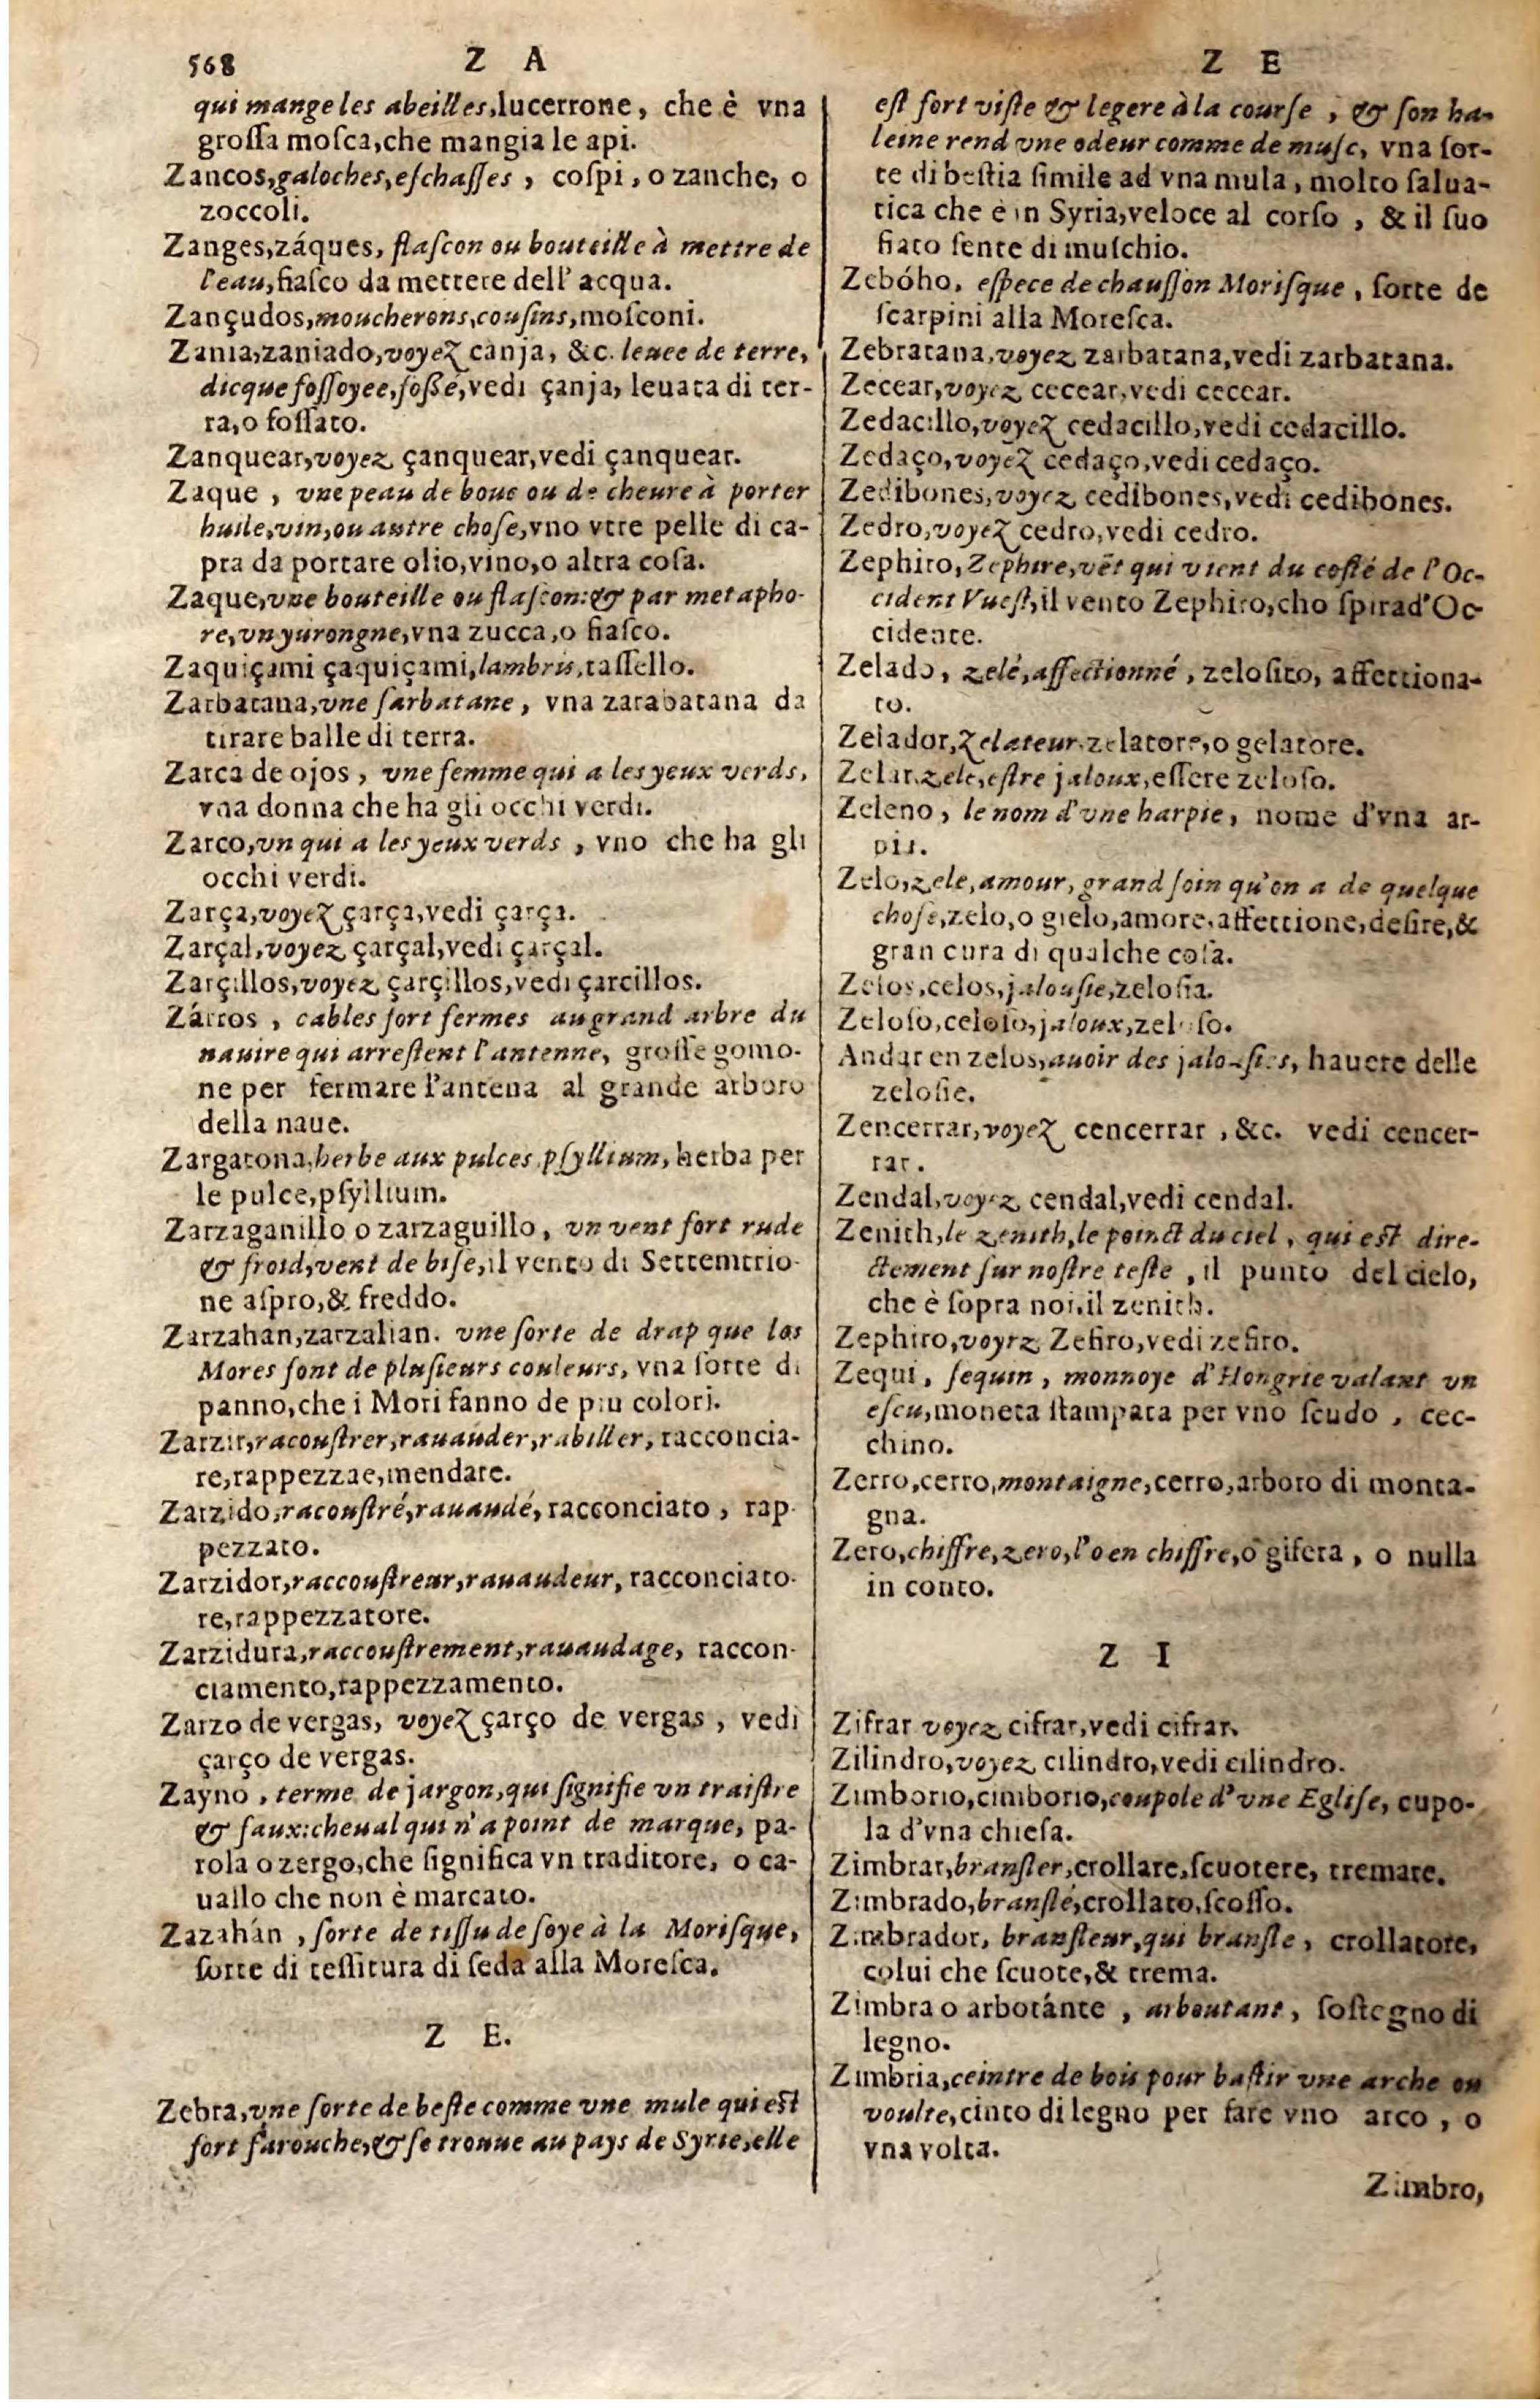 568 Z A
qui mange les abeilles, lucerrone, che è vna
groſſa moſca, che mangia le api.
Zancos, galoches, eſchaſſes, coſpi, o zanche, o
zoccoli.
Zanges, záques, flaſcon ou bouteille à mettre de
l'eau, fiaſco da mettere dell' acqua.
Zançudos, moucherons, couſins, moſconi.
Zania, zaniado, voyez canja, &c. leuee de terre,
dicque foſſoyee, foßé, vedi çanja, leuata di ter-
ra, o foſſato.
Zanquear, voyez çanquear, vedi çanquear.
Zaque, vne peau de bouc ou de cheure à porter
huile, vin, ou autre choſe, vno vtre pelle di ca-
pra da portare olio, vino, o altra coſa.
Zaque, vne bouteille ou flaſcon: & par metapho-
re, vn yurongne, vna zucca, o fiaſco.
Zaquiçami çaquiçami, lambris, taſſello.
Zarbatana, vne ſarbatane, vna zarabatana da
tirare balle di terra.
Zarca de ojos, vne femme qui a les yeux verds,
vna donna che ha gli occhi verdi.
Zarco, vn qui a les yeux verds, vno che ha gli
occhi verdi.
Zarça, voyez çarça, vedi çarça.
Zarçal, voyez çarçal, vedi çarçal.
Zarçillos, voyez çarçillos, vedi çarcillos.
Zárros, cables fort fermes au grand arbre du
nauire qui arreſtent l'antenne, groſſe gomo-
ne per fermare l'antena al grande arboro
della naue.
Zargatona, herbe aux pulces, pſyllium, herba per
le pulce, pſyllium.
Zarzaganillo o zarzaguillo, vn vent fort rude
& froid, vent de biſe, il vento di Settemtrio-
ne aſpro, & freddo.
Zarzahan, zarzalian. vne ſorte de drap que les
Mores font de pluſieurs couleurs, vna ſorte di
panno, che i Mori fanno de piu colori.
Zarzir, racouſtrer, rauauder, rabiller, racconcia-
re, rappezzae, mendare.
Zarzido, racouſtré, rauaudé, racconciato, rap-
pezzato.
Zarzidor, raccouſtreur, rauaudeur, racconciato-
re, rappezzatore.
Zarzidura, raccouſtrement, rauaudage, raccon-
ciamento, rappezzamento.
Zarzo de vergas, voyez çarço de vergas, vedi
çarço de vergas.
Zayno, terme de jargon, qui ſignifie vn traiſtre
& faux: cheual qui n'a point de marque, pa-
rola o zergo, che ſignifica vn traditore, o ca-
uallo che non è marcato.
Zazahán, ſorte de tiſſu de ſoye à la Moriſque,
ſorte di teſſitura di ſeda alla Moreſca.
Z E.
Zebra, vne ſorte de beſte comme vne mule qui est
fort farouche, & ſe trouue au pays de Syrie, elle
Z E
eſt fort viſte & legere à la courſe, & ſon ha-
leine rend vne odeur comme de muſc, vna ſor-
te di beſtia ſimile ad vna mula, molto ſalua-
tica che è in Syria, veloce al corſo, & il ſuo
fiato ſente di muſchio.
Zebóho. eſpece de chauſſon Moriſque, ſorte de
ſcarpini alla Moreſca.
Zebratana, voyez zarbatana, vedi zarbatana.
Zecear, voyez cecear, vedi cecear.
Zedacillo, voyez cedacillo, vedi cedacillo.
Zedaço, voyez cedaço, vedi cedaço.
Zedibones, voyez cedibones, vedi cedibones.
Zedro, voyez cedro, vedi cedro.
Zephiro, Zephire, vẽt qui vient du coſté de l'Oc-
cident Vueſt, il vento Zephiro, cho ſpira d'Oc-
cidente.
Zelado, zelé, affectionné, zeloſito, affettiona-
to.
Zelador, zelateur, zelatore, o gelatore.
Zelar, zele, eſtre jaloux, eſſere zeloſo.
Zeleno, le nom d'vne harpie, nome d'vna ar-
pia.
Zelo, zele, amour, grand ſoin qu'on a de quelque
choſe, zelo, o gielo, amore, affettione, deſire, &
gran cura di qualche coſa.
Zelos, celos, jalouſie, zeloſia.
Zeloſo, celoſo, jaloux, zeloſo.
Andar en zelos, auoir des jalouſies, hauere delle
zeloſie.
Zencerrar, voyez cencerrar, &c. vedi cencer-
rar.
Zendal, voyez cendal, vedi cendal.
Zenith, le zenith, le poinct du ciel, qui est dire-
ctement ſur noſtre teſte, il punto del cielo,
che è ſopra noi, il zenith.
Zephiro, voyrz Zefiro, vedi zefiro.
Zequi, ſequin, monnoye d'Hongrie valant vn
eſcu, moneta ſtampata per vno ſcudo, cec-
chino.
Zerro, cerro, montaigne, cerro, arboro di monta-
gna.
Zero, chiffre, zero, l'o en chiffre, o gifera, o nulla
in conto.
Z I
Zifrar voyez cifrar, vedi cifrar.
Zilindro, voyez cilindro, vedi cilindro.
Zimborio, cimborio, coupole d'vne Egliſe, cupo-
la d'vna chieſa.
Zimbrar, branſler, crollare, ſcuotere, tremare.
Zimbrado, branſlé, crollato, ſcoſſo.
Zimbrador, branſleur, qui branſle, crollatore,
colui che ſcuote, & trema.
Zimbra o arbotánte, arboutant, ſoſtegno di
legno.
Zimbria, ceintre de bois pour baſtir vne arche ou
voulte, cinto di legno per fare vno arco, o
vna volta.
Zimbro,